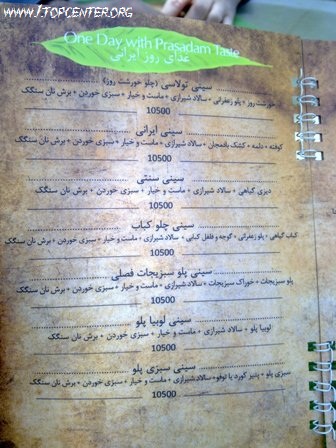 WWW.ITOPCENTER.ORG
One Day with Prasadam Taste
غذای روز ایرانی
سینی تولاسی (چلو خورشت روز)
خورشت روز + پلو زعفرانی + سالاد شیرازی + ماست و خیار + سبزی خوردن + برش نان سنگک
10500
سینی ایرانی
کوفته + دلمه + کشک بادمجان + سالاد شیرازی + ماست و خیار + سبزی خوردن + برش نان سنگک
10500
سینی سنتی
دیزی گیاهی + سالاد شیرازی + ماست و خیار + سبزی خوردن + برش نان سنگک
10500
سینی چلو کباب
کباب گیاهی + پلو زعفرانی + گوجه و فلفل کبابی + سالاد شیرازی + ماست و خیار + سبزی خوردن + برش نان سنگک
10500
سینی پلو سبزیجات فصلی
پلو سبزیجات + خوراک سبزیجات + سالاد شیرازی + ماست و خیار + سبزی خوردن + برش نان سنگک
10500
سینی لوبیا پلو
لوبیا پلو + سالاد شیرازی + ماست و خیار + سبزی خوردن + برش نان سنگک
10500
سینی سبزی پلو
سبزی پلو + پنیر گورد یا توفو + سالاد شیرازی + ماست و خیار + سبزی خوردن + برش نان سنگک
10500